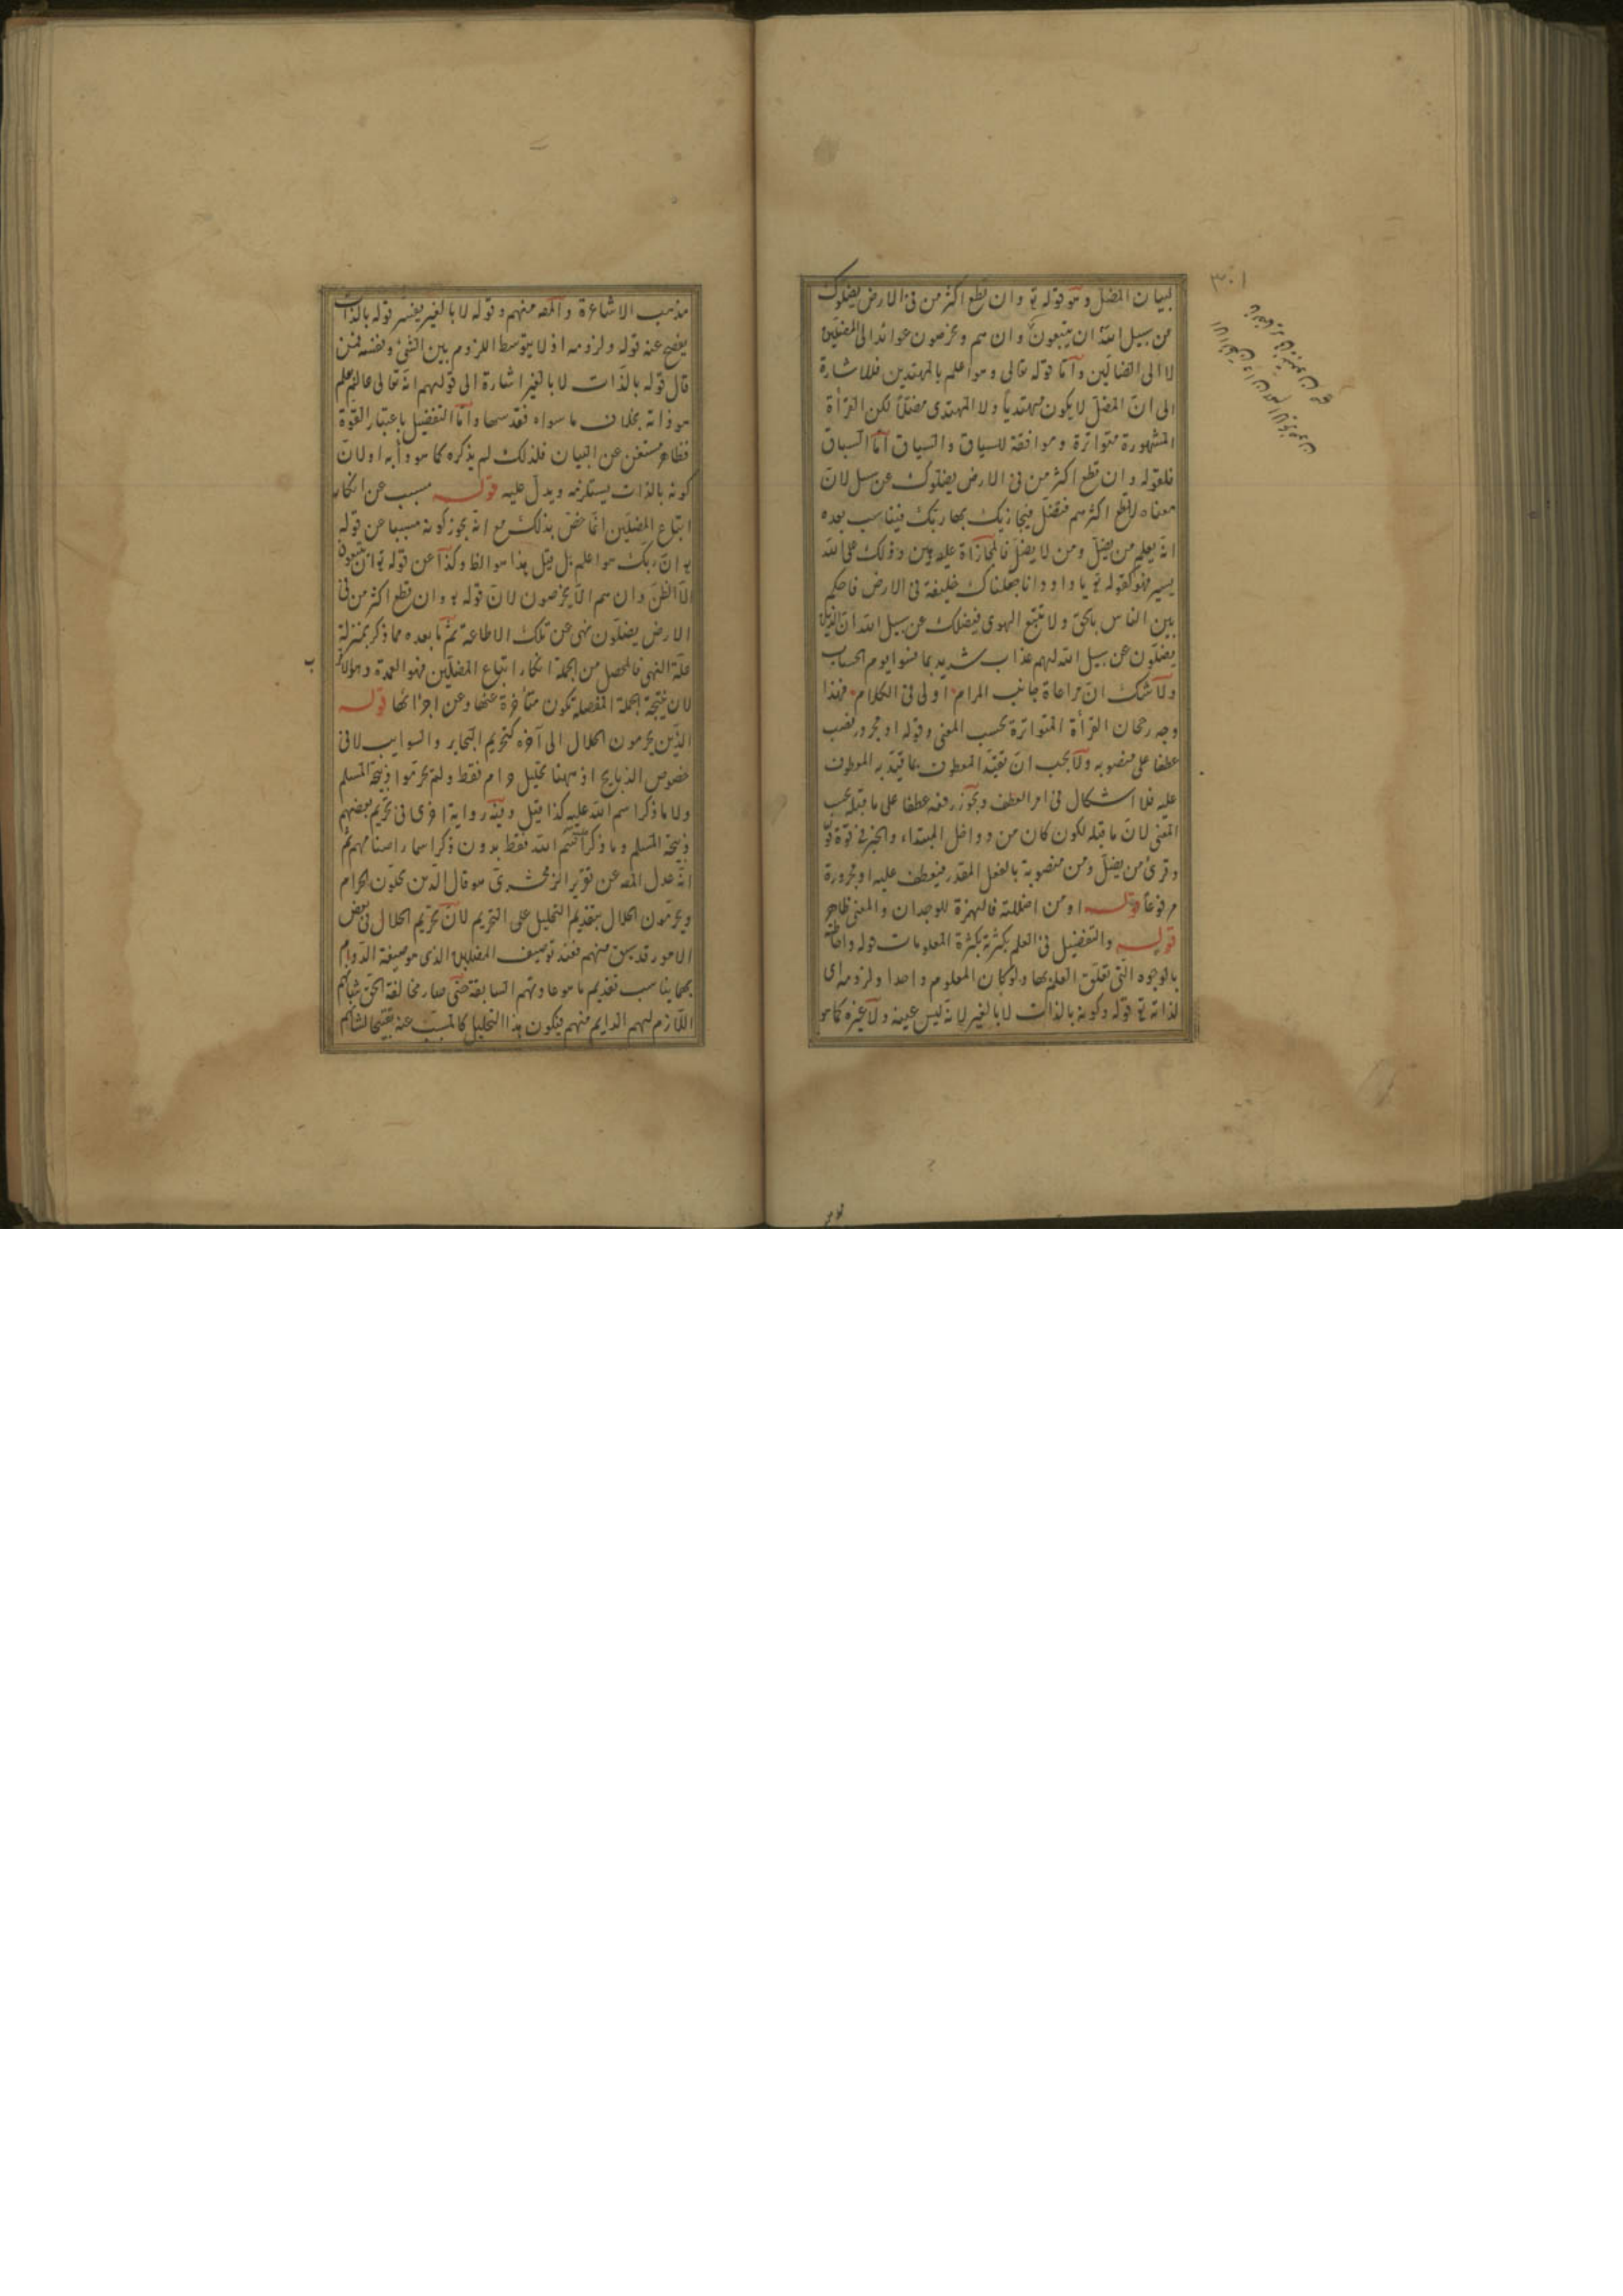 ٣٠١
لبيان المضل وهو قوله تو وان تطع اكثر من في الارض يضلوك
من سبيل الله ان يتبعون وان هم ويخرصون عوائد الى المضلين
لا الى الضالين واما قوله تعالى وهو اعلم بالمهتدين فللاشارة
الى ان المضل لا يكون مهتديا ولا المهتدى مضلا لكن القرأة
المشهورة متواترة وموافقة للسياق والسباق اما السباق
فلقوله وان تطع اكثر من في الارض يضلوك عن سبيل لان
معناه لا تطع اكثرهم فتضل فيجازيك بها ربك فيناسب بعده
انه يعلم من يضل ومن لا يضل فالمجازاة عليه هين وذلك على الله
يسير فهو كقوله تو يا داود انا جعلناك خليفة في الارض فاحكم
بين الناس بالحق ولا تتبع الهوى فيضلك عن سبيل الله ان الذين
يضلون عن سبيل الله لهم عذاب شديد بما نسوا يوم الحساب
ولا شك ان مراعاة جانب المرام اولى في الكلام فهذا
وجه رجحان القرأة المتواترة بحسب المعنى وقوله او مجرور نصب
عطفا على منصوبه ولا يجب ان تقيد المعطوف بما قيد به المعطوف
عليه فلا اشكال في امر العطف ويجوز رفعه عطفا على ما قبله بحسب
المعنى لان ما قبله لكون كان من دواخل المبتداء والخبر في قوة
وقرئ من يضل ومن منصوبة بالفعل المقدر فيعطف عليه او مجرورة
مرفوعا قوله او من اضللته فالهمزة للوجدان والمعنى ظاهر
قوله والتفضيل في العلم بكثرته بكثرة المعلومات قوله واحاطته
بالوجوه التي تعلق العلم بها ولو كان المعلوم واحدا ولزومه اى
لذاته تو قوله وكونه بالذات لا بالغير لانه ليس عينه ولا غيره كما هو
مذهب الاشاعرة والمصه منهم وقوله لا بالغير يفسر قوله بالذات
يفصح عنه قوله ولزومه اذ لا يتوسط اللزوم بين الشئ ونفسه فمن
قال قوله بالذات لا بالغير اشارة الى قولهم انه تعالى عالم بعلم
هو ذاته بخلاف ما سواه فقد سها واما التفضيل باعتبار القوة
فظاهر مستغن عن البيان فلذلك لم يذكره كما هو دأبه او لان
كونه بالذات يستلزمه ويدل عليه قوله مسبب عن انكار
اتباع المضلين انما خص بذلك مع انه يجوز كونه مسببا عن قوله
تو ان ربك هو اعلم بل قيل هذا هو الظ وكذا عن قوله تو ان يتبعون
الا الظن وان هم الا يخرصون لان قوله تو وان تطع اكثر من في
الارض يضلون نهى عن تلك الاطاعة ثم ما بعده مما ذكر بمنزلة
علة النهى فالمحصل من الجملة انكار اتباع المضلين فهو العمدة
لان نتيجة الجملة المفصلة تكون متأخرة عنها وعن اجزائها قوله
الذين يحرمون الحلال الى آخره كتحريم البحاير والسوايب لا في
خصوص الذبايح اذ ههنا تحليل حرام فقط ولم يحرموا ذبيحة المسلم
ولا ما ذكر اسم الله عليه كذا قيل وفيه رواية اخرى في تحريم بعضهم
ذبيحة المسلم وما ذكر اسم الله فقط بدون ذكر اسما اصنامهم ثم
انه عدل المصه عن تقرير الزمخشرى هو قال الذين يحلون الحرام
ويحرمون الحلال بتقديم التحليل على التحريم لان تحريم الحلال في بعض
الامور قد سبق منهم فعند توصيف المضلين الذى هو صيغة الدوام
بها يناسب تقديم ما هو عادتهم السابقة حتى صار مخالفة الحق شأنهم
اللازم لهم الدايم منهم فيكون هذا التحليل كالمسبب عنه تقبيحا لشأنهم